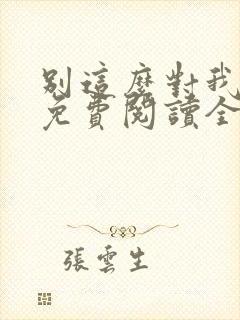 別這麼對我
免費閱讀全
張雲生